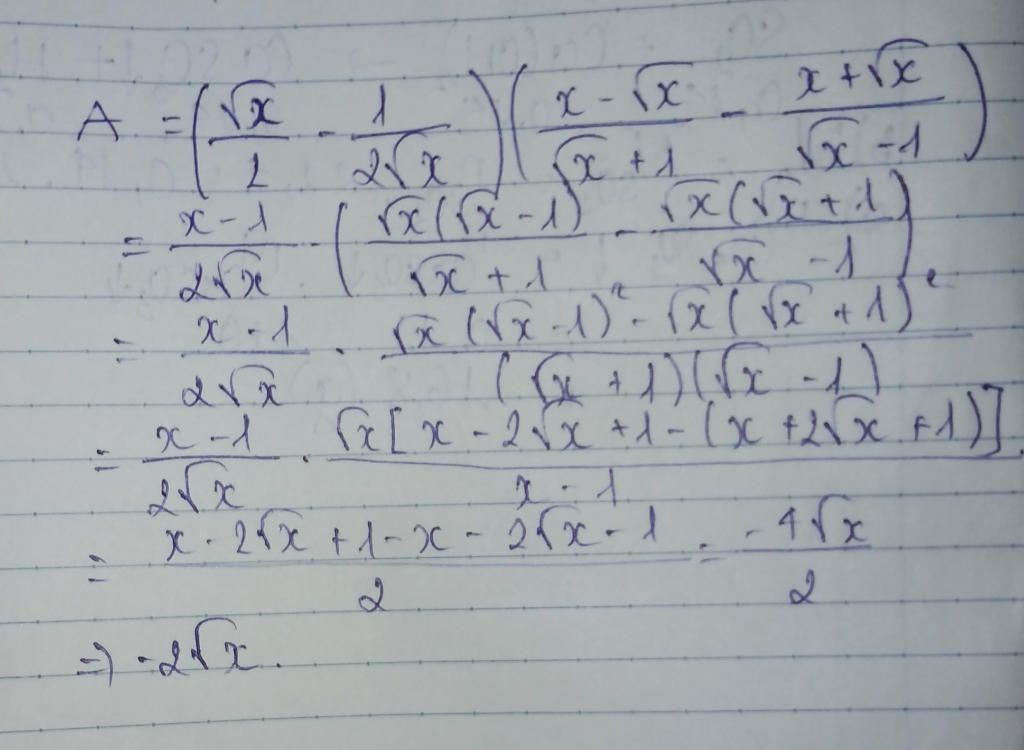 A = (√x/2 - 1/2√x)(x - √x/√x + 1 - x + √x/√x - 1)
= x - 1/2√x · (√x(√x - 1)/√x + 1 - √x(√x + 1)/√x - 1)
= x - 1/2√x · √x(√x - 1)² - √x(√x + 1)²/(√x + 1)(√x - 1)
= x - 1/2√x · √x[x - 2√x + 1 - (x + 2√x + 1)]/x - 1
= x - 2√x + 1 - x - 2√x - 1/2 = -4√x/2
=> -2√x.